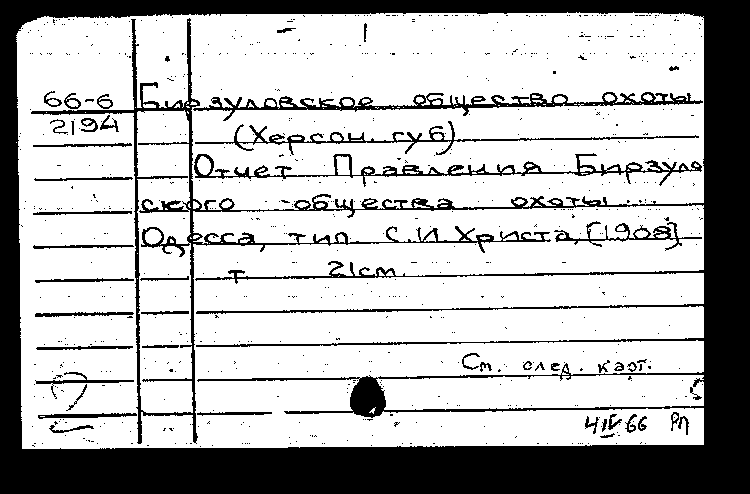 66-6 Бирзуловское общество охоты
2194 (Херсон. губ)
Отчет Правления Бирзулов
ского общества охоты ...
Одесса, тип. С.И. Христа, [1908]
т. 21см.
См. след. карт.
4 IV 66 РП